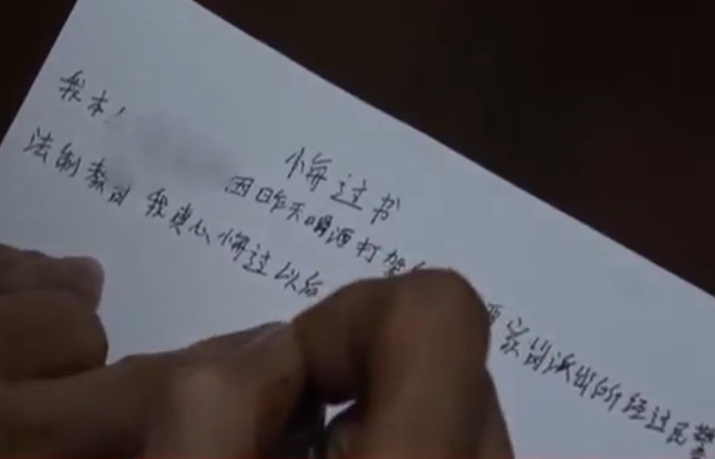 悔过书
我本人 因昨天喝酒打架 派出所经过民警
法制教育 我真心悔过以后